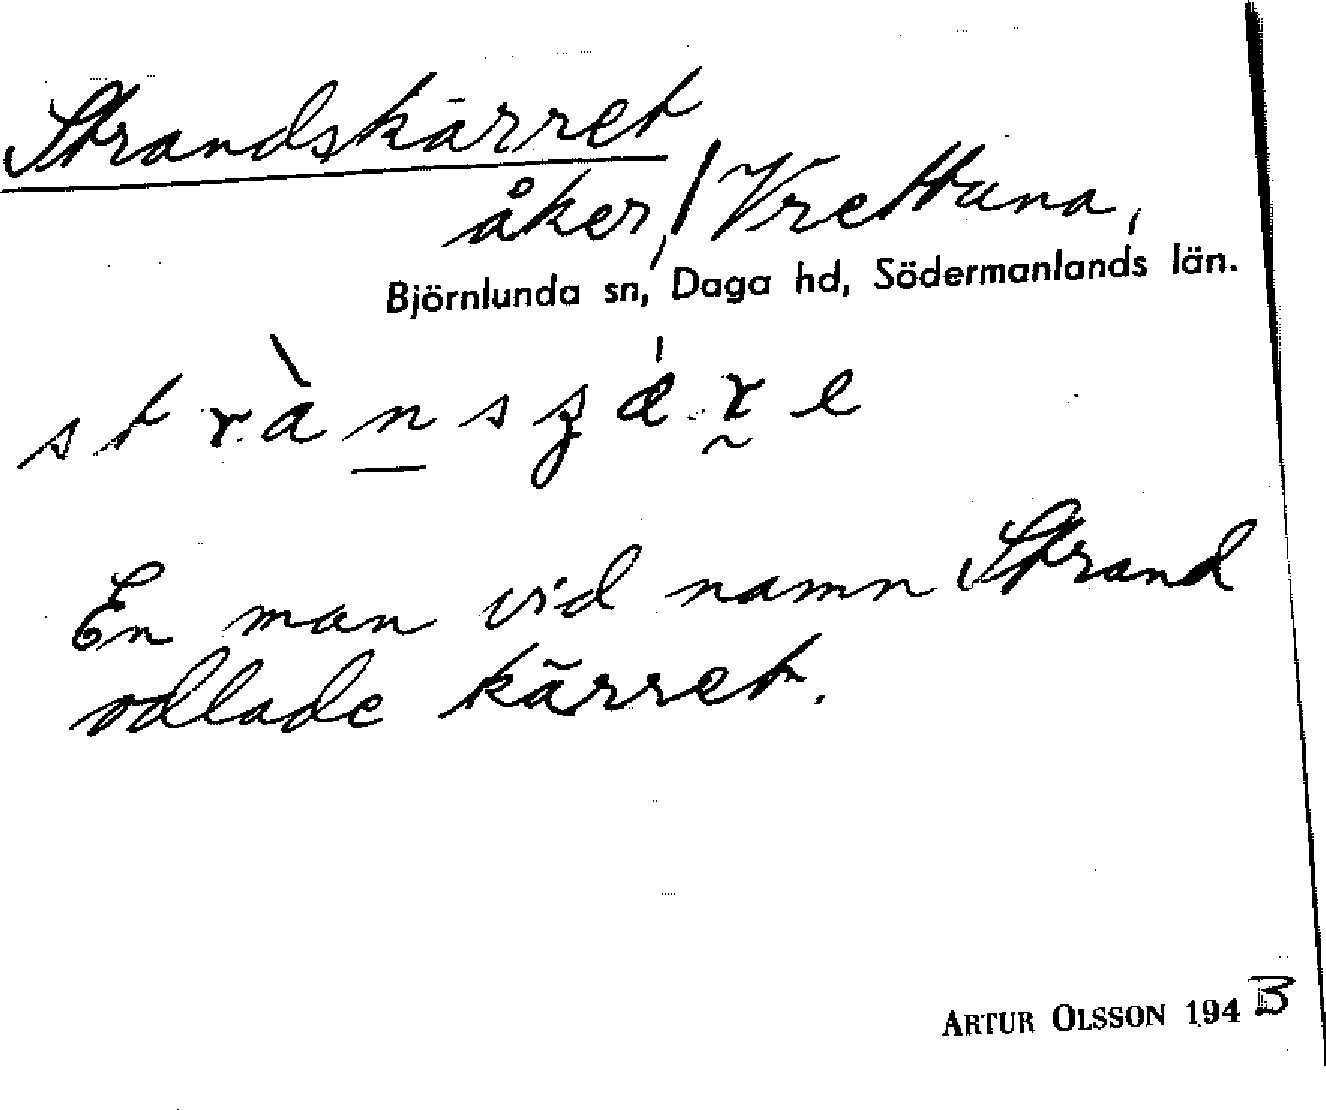 Strandskärret
åker, / Vrettuna,
Björnlunda sn, Daga hd, Södermanlands län.
En man vid namn Strand
odlade kärret.
ARTUR OLSSON 194 3